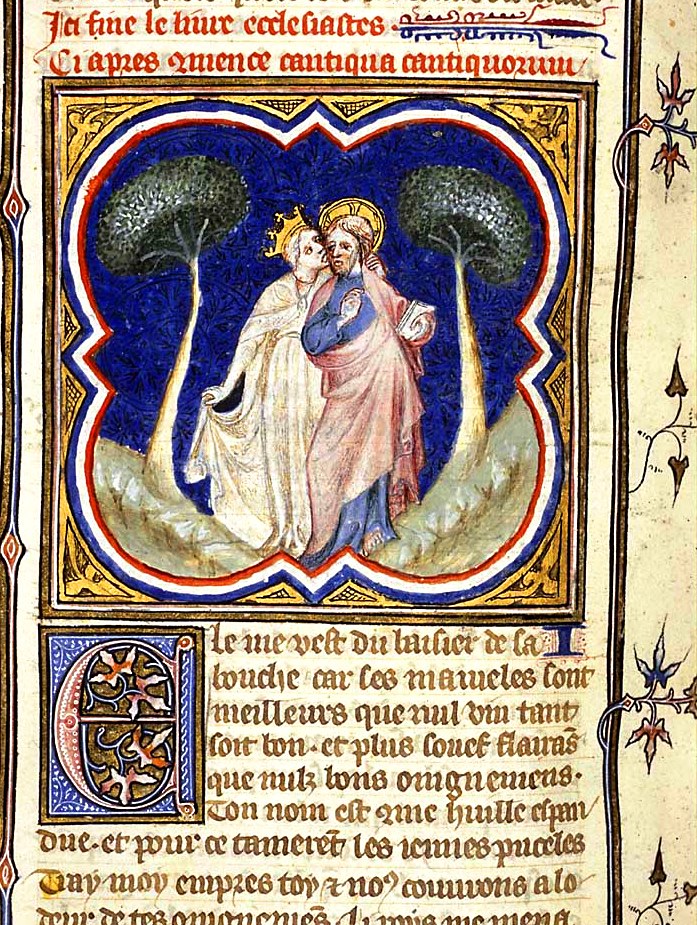 Ici fine le liure ecclesiastes
Ci apres 9mence cantiqua cantiquorum
Ele me vest du baisier de sa I
bouche car ses mameles sont
meilleurs que nul vin tant
soit bon · et plus souef flaurãs
que nulz bons oingnemens ·
Ton nom est 9me huille espan
due · et pour ce tamerēt les ieunes puceles
Tray moy empres toy ⁊ noꝰ courrons a lo
deur de tes oingnemēs . li roys me mena